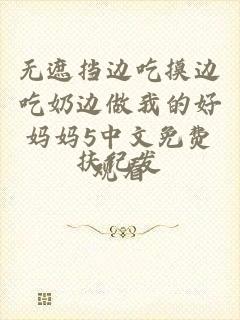 无遮挡边吃摸边
吃奶边做我的好
妈妈5中文免费
观看